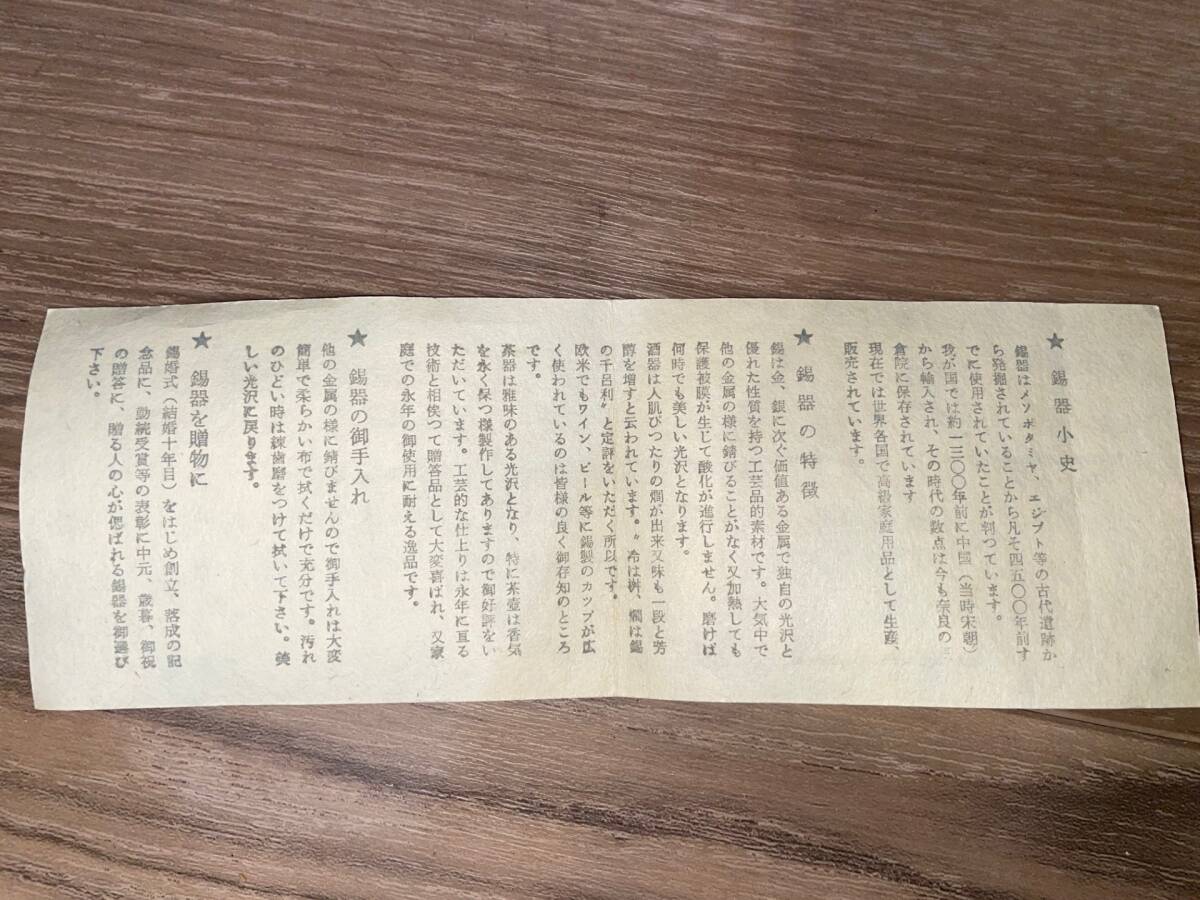 ★ 錫器小史
錫器はメソポタミヤ、エジプト等の古代遺跡か
ら発掘されていることから凡そ四五〇〇年前す
でに使用されていたことが判つています。
我が国では約一三〇〇年前に中國（当時宋朝）
から輸入され、その時代の数点は今も奈良の正
倉院に保存されています
現在では世界各国で高級家庭用品として生産、
販売されています。
★ 錫器の特徴
錫は金、銀に次ぐ価値ある金属で独自の光沢と
優れた性質を持つ工芸品的素材です。大気中で
他の金属の様に錆びることがなく又加熱しても
保護被膜が生じて酸化が進行しません。磨けば
何時でも美しい光沢となります。
酒器は人肌ぴつたりの燗が出来又味も一段と芳
醇を増すと云われています。〝冷は桝、燗は錫
の千呂利〟と定評をいただく所以です。
欧米でもワイン、ビール等に錫製のカツプが広
く使われているのは皆様の良く御存知のところ
です。
茶器は雅味のある光沢となり、特に茶壺は香気
を永く保つ様製作してありますので御好評をい
ただいています。工芸的な仕上りは永年に亘る
技術と相俟つて贈答品として大変喜ばれ、又家
庭での永年の御使用に耐える逸品です。
★ 錫器の御手入れ
他の金属の様に錆びませんので御手入れは大変
簡単で柔らかい布で拭くだけで充分です。汚れ
のひどい時は練歯磨をつけて拭いて下さい。美
しい光沢に戻ります。
★ 錫器を贈物に
錫婚式（結婚十年目）をはじめ創立、落成の記
念品に、勤続受賞等の表彰に中元、歳暮、御祝
の贈答に、贈る人の心が偲ばれる錫器を御選び
下さい。